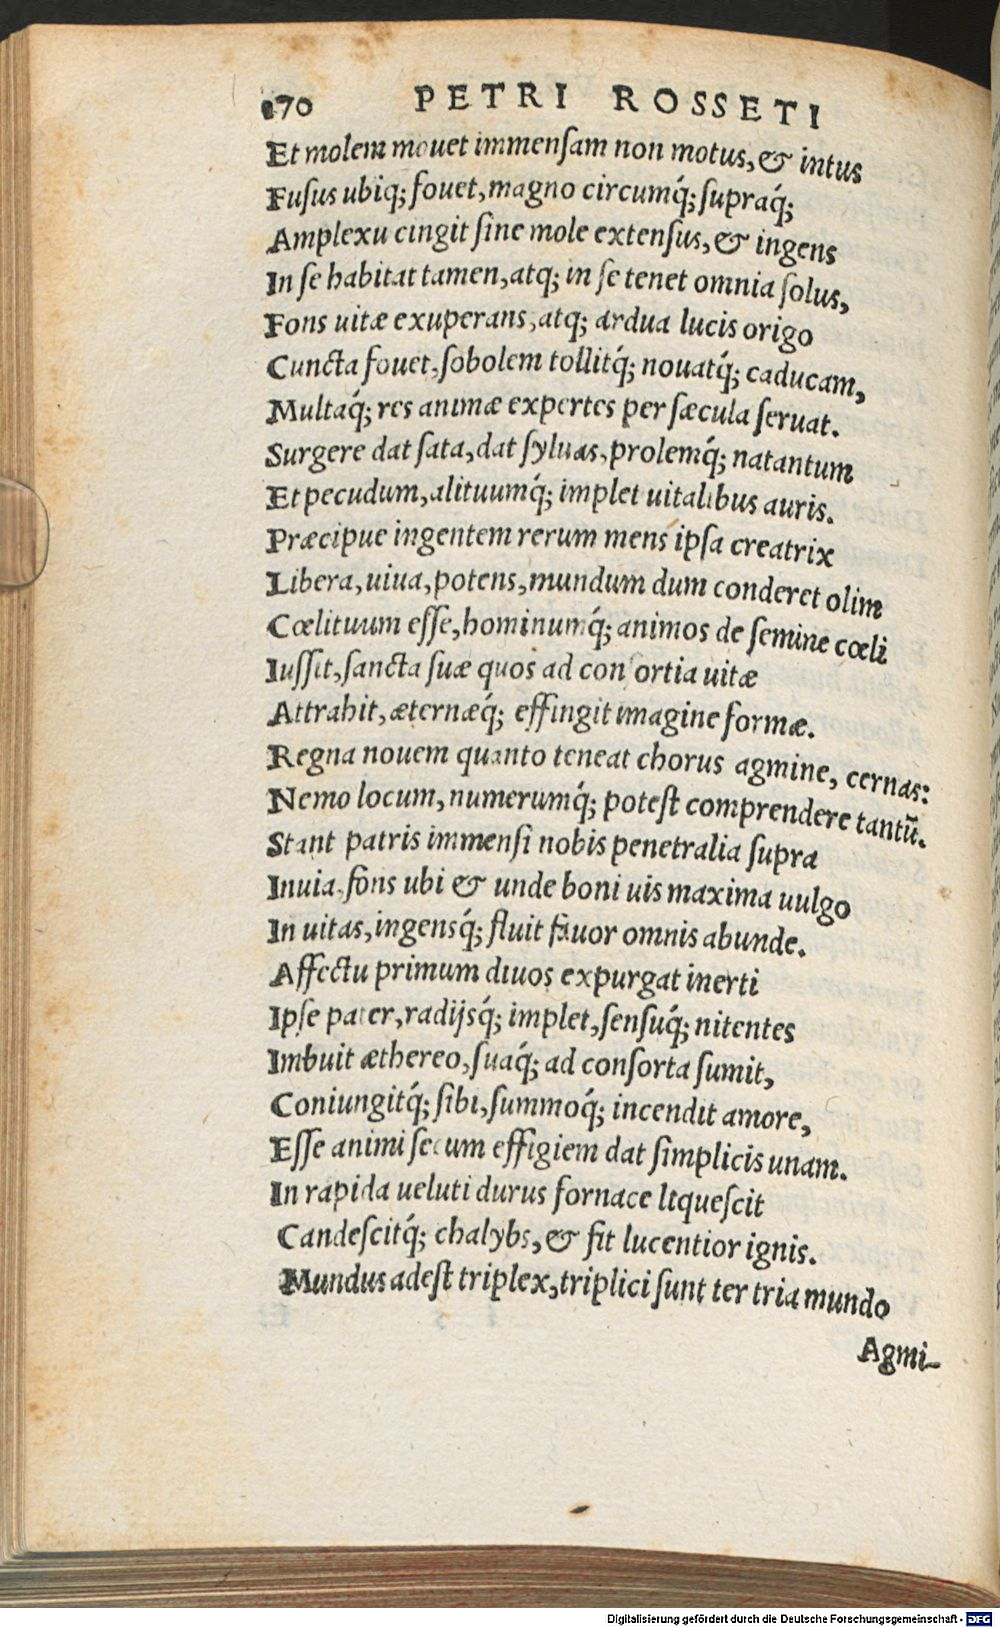 170 PETRI ROSSETI
Et molem mouet immenſam non motus, & intus
Fuſus ubiq; fouet, magno circumq́; ſupraq́;
Amplexu cingit ſine mole extenſus, & ingens
In ſe habitat tamen, atq; in ſe tenet omnia ſolus,
Fons uitæ exuperans, atq; ardua lucis origo
Cuncta fouet, ſobolem tollitq́; nouatq́; caducam,
Multaq́; res animæ expertes per ſæcula ſeruat.
Surgere dat ſata, dat ſyluas, prolemq́; natantum
Et pecudum, alituumq́; implet uitalibus auris.
Præcipue ingentem rerum mens ipſa creatrix
Libera, uiua, potens, mundum dum conderet olim
Cœlituum eſſe, hominumq́; animos de ſemine cœli
Iuſſit, ſancta ſuæ quos ad conſortia uitæ
Attrahit, æternæq́; effingit imagine formæ.
Regna nouem quanto teneat chorus agmine, cernas:
Nemo locum, numerumq́; poteſt comprendere tantū.
Stant patris immenſi nobis penetralia ſupra
Inuia, fons ubi & unde boni uis maxima uulgo
In uitas, ingensq́; fluit fauor omnis abunde.
Affectu primum diuos expurgat inerti
Ipſe pater, radijsq́; implet, ſenſuq́; nitentes
Imbuit æthereo, ſuaq́; ad conſorta ſumit,
Coniungitq́; ſibi, ſummoq́; incendit amore,
Eſſe animi ſecum effigiem dat ſimplicis unam.
In rapida ueluti durus fornace liqueſcit
Candeſcitq́; chalybs, & fit lucentior ignis.
Mundus adeſt triplex, triplici ſunt ter tria mundo
Agmi-
Digitalisierung gefördert durch die Deutsche Forschungsgemeinschaft - DFG